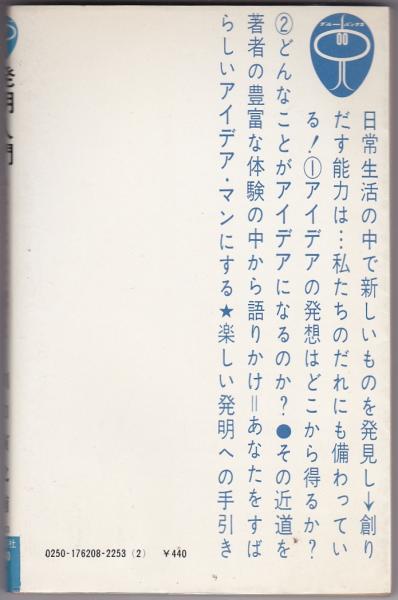 ブルーバックス
日常生活の中で新しいものを発見し→創り
だす能力は…私たちのだれにも備わってい
る！①アイデアの発想はどこから得るか？
②どんなことがアイデアになるのか？●その近道を
著者の豊富な体験の中から語りかけ＝あなたをすば
らしいアイデア・マンにする★楽しい発明への手引き
0250-176208-2253 (2) ￥440
発明入門